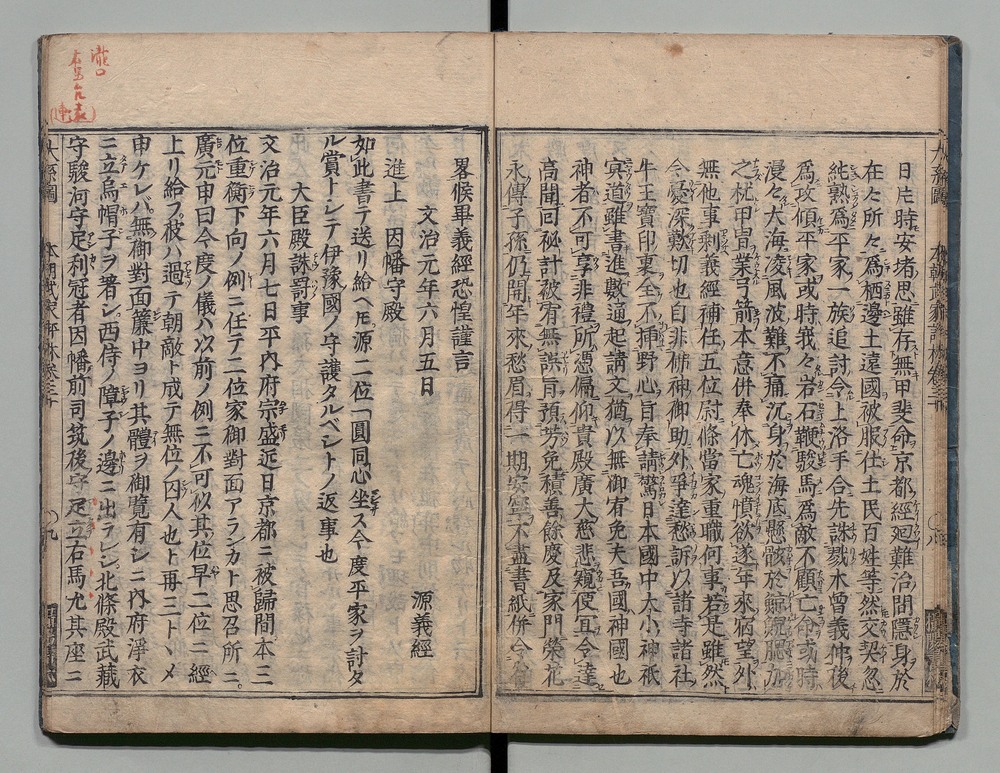 日片時安堵思雖存無甲斐命京都經廻難治間隱身於
在々所々為栖邊土遠國被服仕土民百姓等然交契忽
純熟為平家一族追討令上洛手合先誅戮木曽義仲後
為攻傾平家或時我々岩石鞭駿馬為敵不顧亡命或時
漫々大海凌風波難不痛沉身於海底縣骸於鯨鯢腮加
之枕甲冑業弓箭本意併奉休亡魂憤欲遂年來宿望外
無他事剰義經補任五位尉條當家重職何事若是雖然
今憂深歎切也自非佛神御助外爭達愁訴以諸寺諸社
牛王寶印裏全不揷野心旨奉請驚日本國中大小神祇
冥道雖書進數通起請文猶以無御宥免夫吾國神國也
神者不可享非禮所憑偏仰貴殿廣大慈悲窺便宜令達
高聞回秘計被宥無誤旨預芳免積善餘慶及家門榮花
永傳子孫仍開年來愁眉得一期安寧不盡書紙併令省
畧候畢義經恐惶謹言
文治元年六月五日
源義經
進上 因幡守殿
如此書テ送リ給ヘ𪜈源二位一圓同心坐ス今度平家ヲ討タ
ル賞トシテ伊豫國ノ守護タルベシトノ返事也
大臣殿誅罰事
文治元年六月七日平內府宗盛近日京都ニ被歸間本三
位重衡下向ノ例ニ任テ二位家御對面アランカト思召所ニ
廣元申曰今度ノ儀ハ以前ノ例ニ不可似其位早二位ニ經
上リ給フ彼ハ過テ朝敵ト成テ無位ノ囚人也ト再三トヽメ
申ケレバ無御對面簾中ヨリ其體ヲ御覽有シニ內府淨衣
ニ立烏帽子ヲ著シ西侍ノ障子ノ邊ニ出ラレシ北條殿武藏
守駿河守足利冠者因幡前司筑後守足立右馬允其座ニ